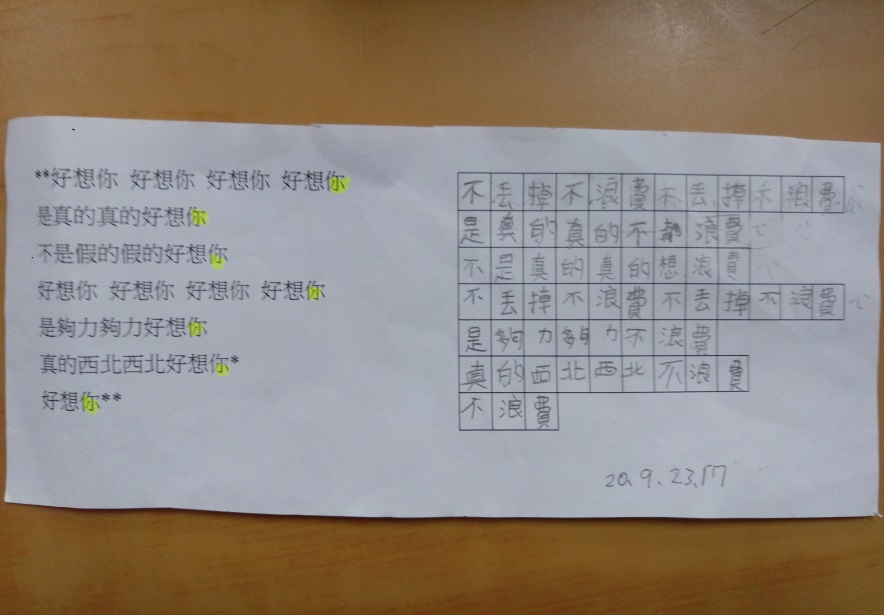 **好想你 好想你 好想你 好想你
是真的真的好想你
不是假的假的好想你
好想你 好想你 好想你 好想你
是夠力夠力好想你
真的西北西北好想你*
好想你**
不丟掉不浪費不丟掉不浪費
是真的真的不想浪費
不是真的真的想浪費
不丟掉不浪費不丟掉不浪費
是夠力夠力不浪費
真的西北西北不浪費
不浪費